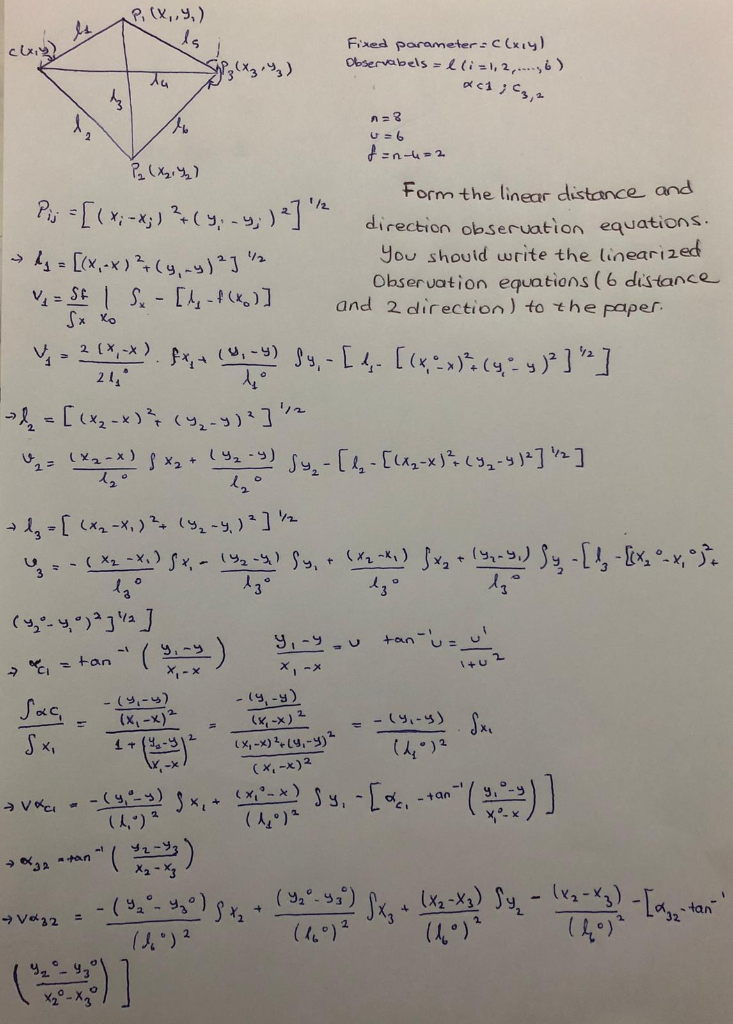 P₁ (x₁, y₁)
l₁
l₅
c(x,y)
P₃ (x₃, y₃)
l₄
l₃
l₂
l₆
P₂ (x₂, y₂)
Fixed parameter = c(x,y)
Observabels = l (i=1,2,.....,6)
αc1 ; C₃,₂
n=8
u=6
f=n-u=2
Form the linear distance and
direction observation equations.
You should write the linearized
Observation equations (6 distance
and 2 direction) to the paper.
Pᵢⱼ = [(xᵢ-xⱼ)²+(yᵢ-yⱼ)²]^1/2
→ l₁ = [(x₁-x)²+(y₁-y)²]^1/2
V₁ = δf/δx |x₀ δx - [l₁-f(x₀)]
V₁ = 2(x₁-x)/2l₁° . δx₁ + (y₁-y)/l₁° δy₁ - [l₁-[(x₁°-x)²+(y₁°-y)²]^1/2]
→ l₂ = [(x₂-x)²+(y₂-y)²]^1/2
v₂ = (x₂-x)/l₂° δx₂ + (y₂-y)/l₂° δy₂ - [l₂-[(x₂-x)²+(y₂-y)²]^1/2]
→ l₃ = [(x₂-x₁)²+(y₂-y₁)²]^1/2
v₃ = -(x₂-x₁)/l₃° δx₁ - (y₂-y₁)/l₃° δy₁ + (x₂-x₁)/l₃° δx₂ + (y₂-y₁)/l₃° δy₂ - [l₃-[(x₂°-x₁°)²+
(y₂°-y₁°)²]^1/2]
→ αc₁ = tan⁻¹ ((y₁-y)/(x₁-x)) (y₁-y)/(x₁-x) = u tan⁻¹u = u'/(1+u²)
δαc₁/δx₁ = (-(y₁-y)/(x₁-x)²)/(1+((y₂-y)/(x₁-x))²) = (-(y₁-y)/(x₁-x)²)/(((x₁-x)²+(y₁-y)²)/(x₁-x)²) = -(y₁-y)/(l₁°)² . δx₁
→ Vαc₁ = -(y₁°-y)/(l₁°)² δx₁ + (x₁°-x)/(l₁°)² δy₁ - [αc₁ - tan⁻¹((y₁°-y)/(x₁°-x))]
→ α₃₂ = tan⁻¹ ((y₂-y₃)/(x₂-x₃))
→ Vα₃₂ = -(y₂°-y₃°)/(l₆°)² δx₂ + (y₂°-y₃°)/(l₆°)² δx₃ + (x₂-x₃)/(l₆°)² δy₂ - (x₂-x₃)/(l₆°)² - [α₃₂-tan⁻¹
((y₂°-y₃°)/(x₂°-x₃°))]